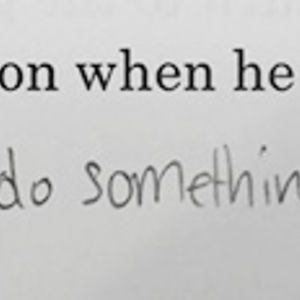 on when he
do somethin